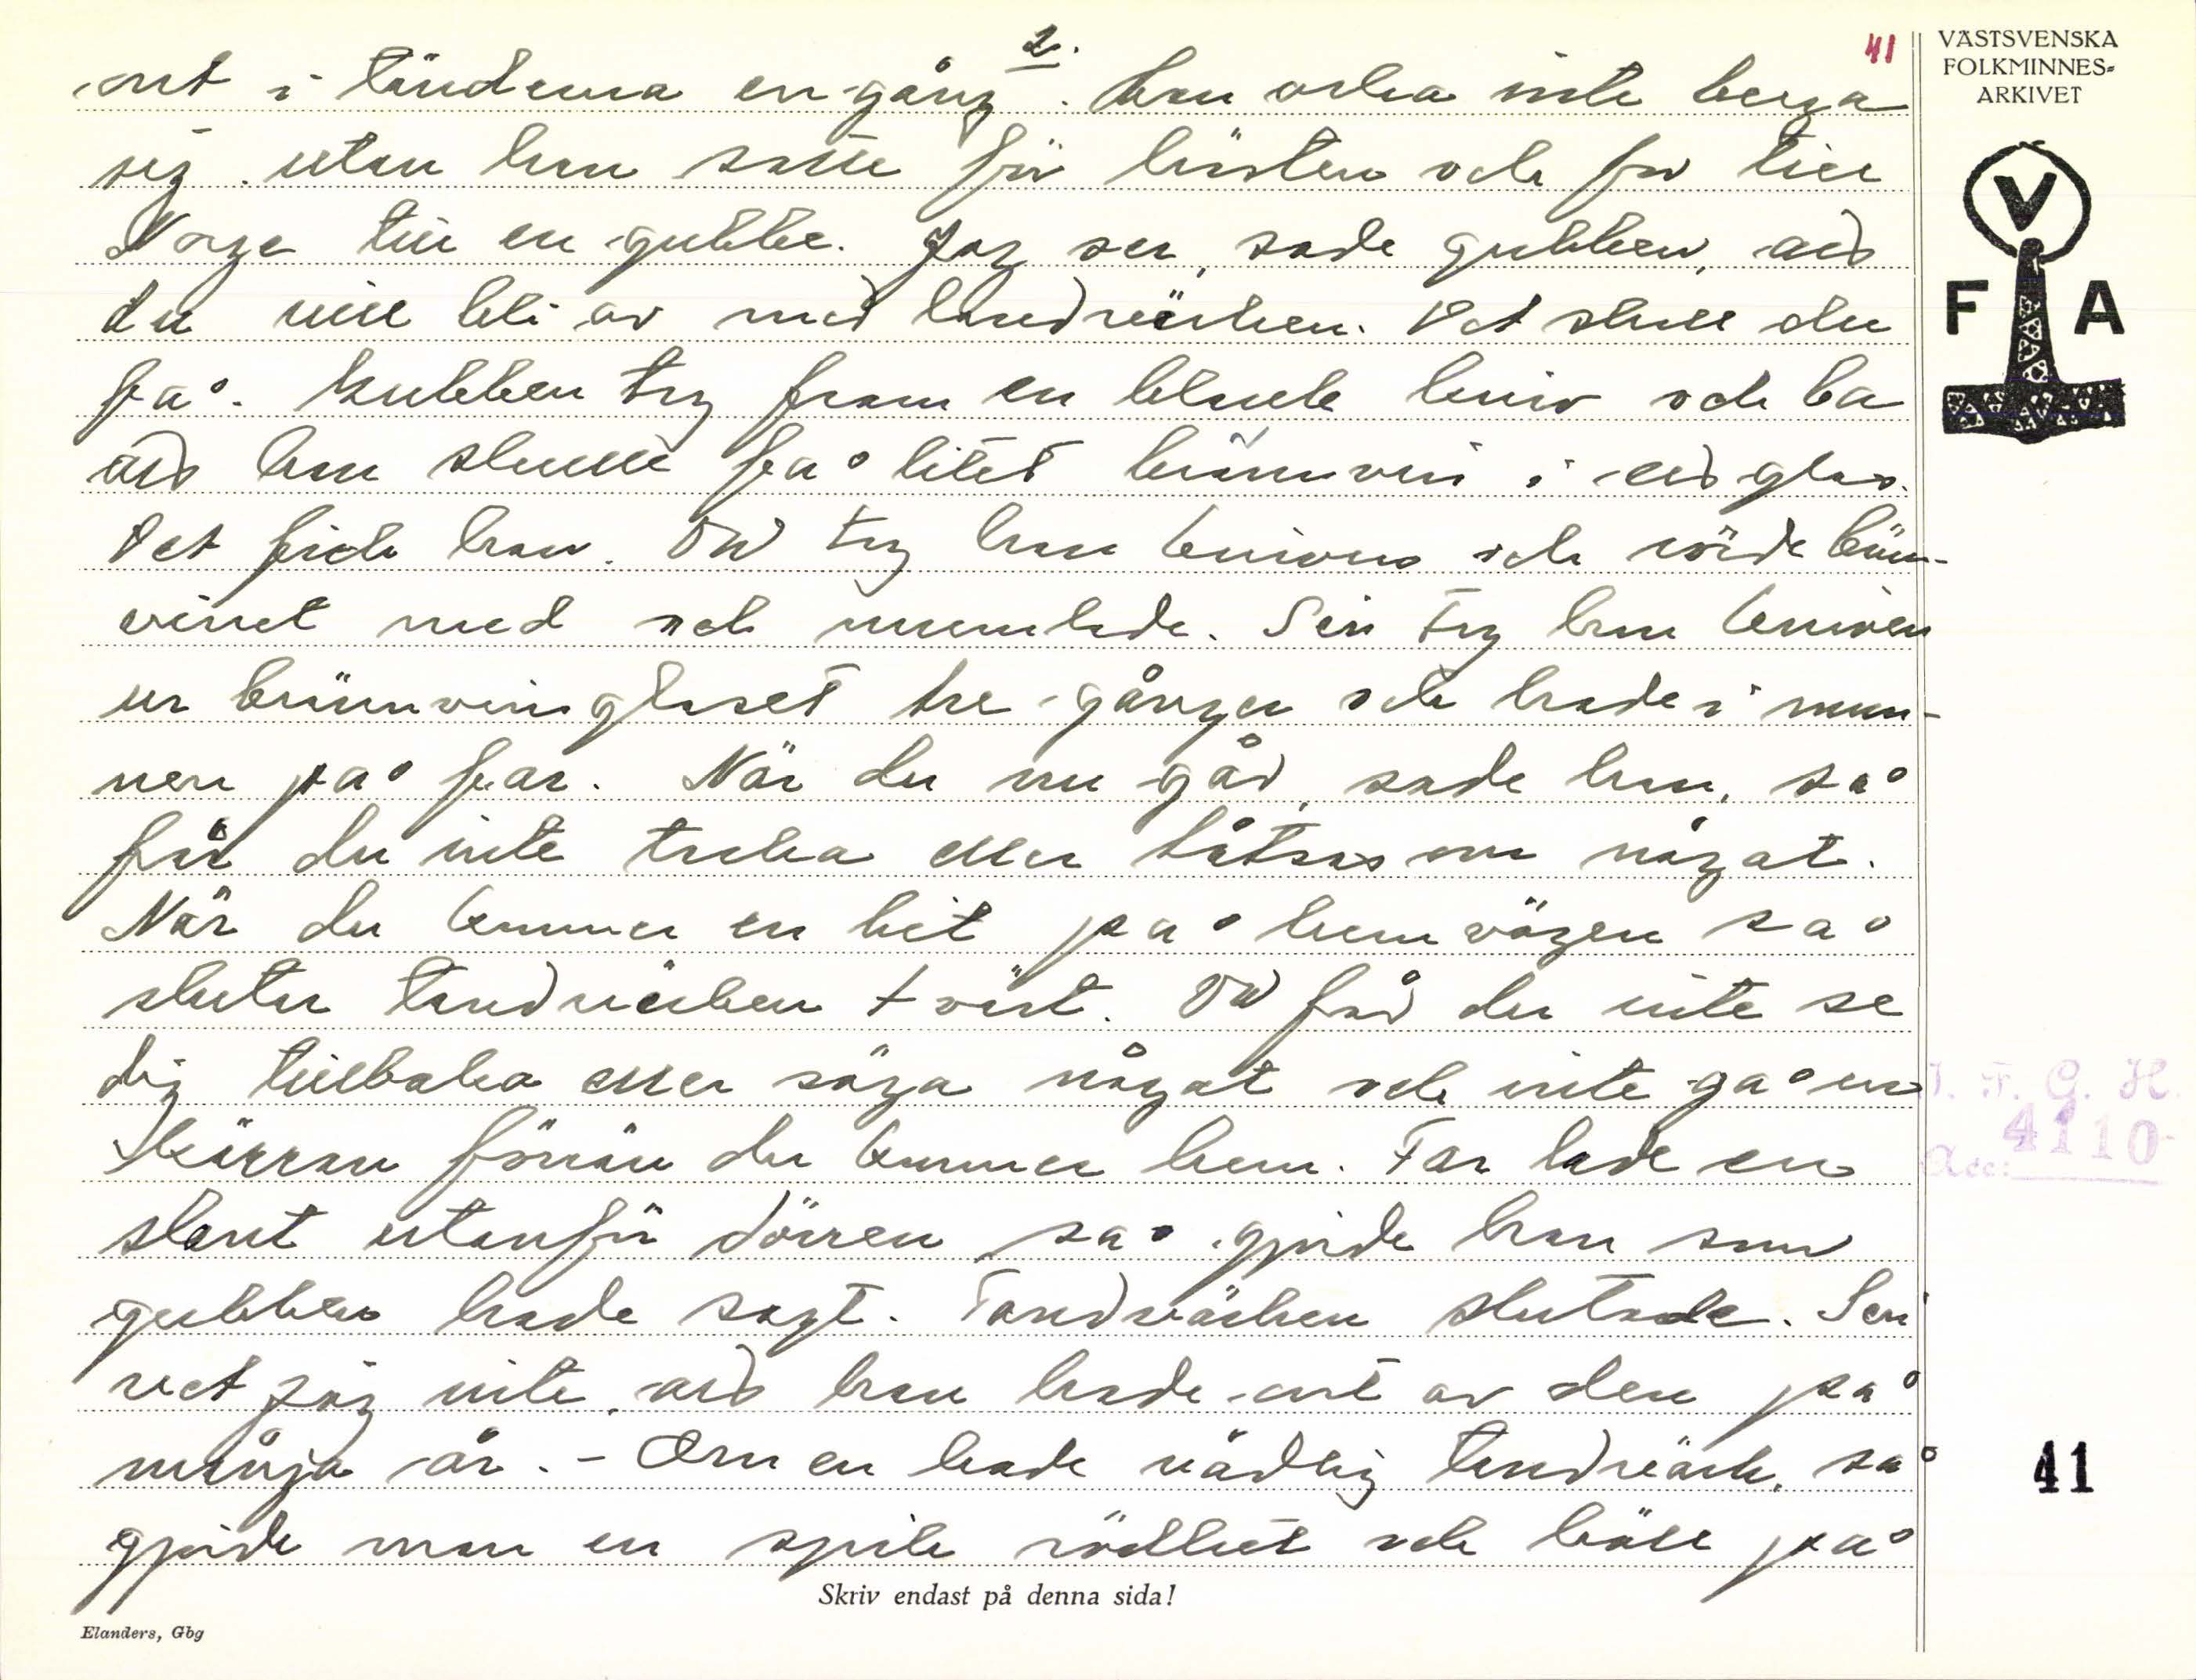 2.
41
ont i tänderna en gång. Han orka inte berga
sig utan han satte för hästen och for till
Norge till en gubbe. Jag ser, sade gubben, att
du vill bli av med tandvärken. Det skall du
få. Gubben tog fram en blank kniv och ba
att han skulle få litet brännvin i ett glas.
Det fick han. Då tog han kniven och rörde bränn-
vinet med och mumlade. Sen tog han kniven
ur brännvinsglaset tre gånger och hade i mun-
nen på far. När du nu går, sade han, så
får du inte tacka eller låtsas om något.
När du kommer en bit på hemvägen så
slutar tandvärken tvärt. Då får du inte se
dig tillbaka eller säga något och inte gå ur
kärran förrän du kommer hem. Far lade en
slant utanför dörren så gjorde han som
gubben hade sagt. Tandvärken slutade. Sen
vet jag inte, att han hade ont av den på
många år. - Om en hade rådlig tandvärk, så
gjorde man en spik rödhet och höll på
Skriv endast på denna sida!
Elanders, Gbg
VÄSTSVENSKA
FOLKMINNES-
ARKIVET
V
F A
I. F. G. H.
Acc: 4110
41